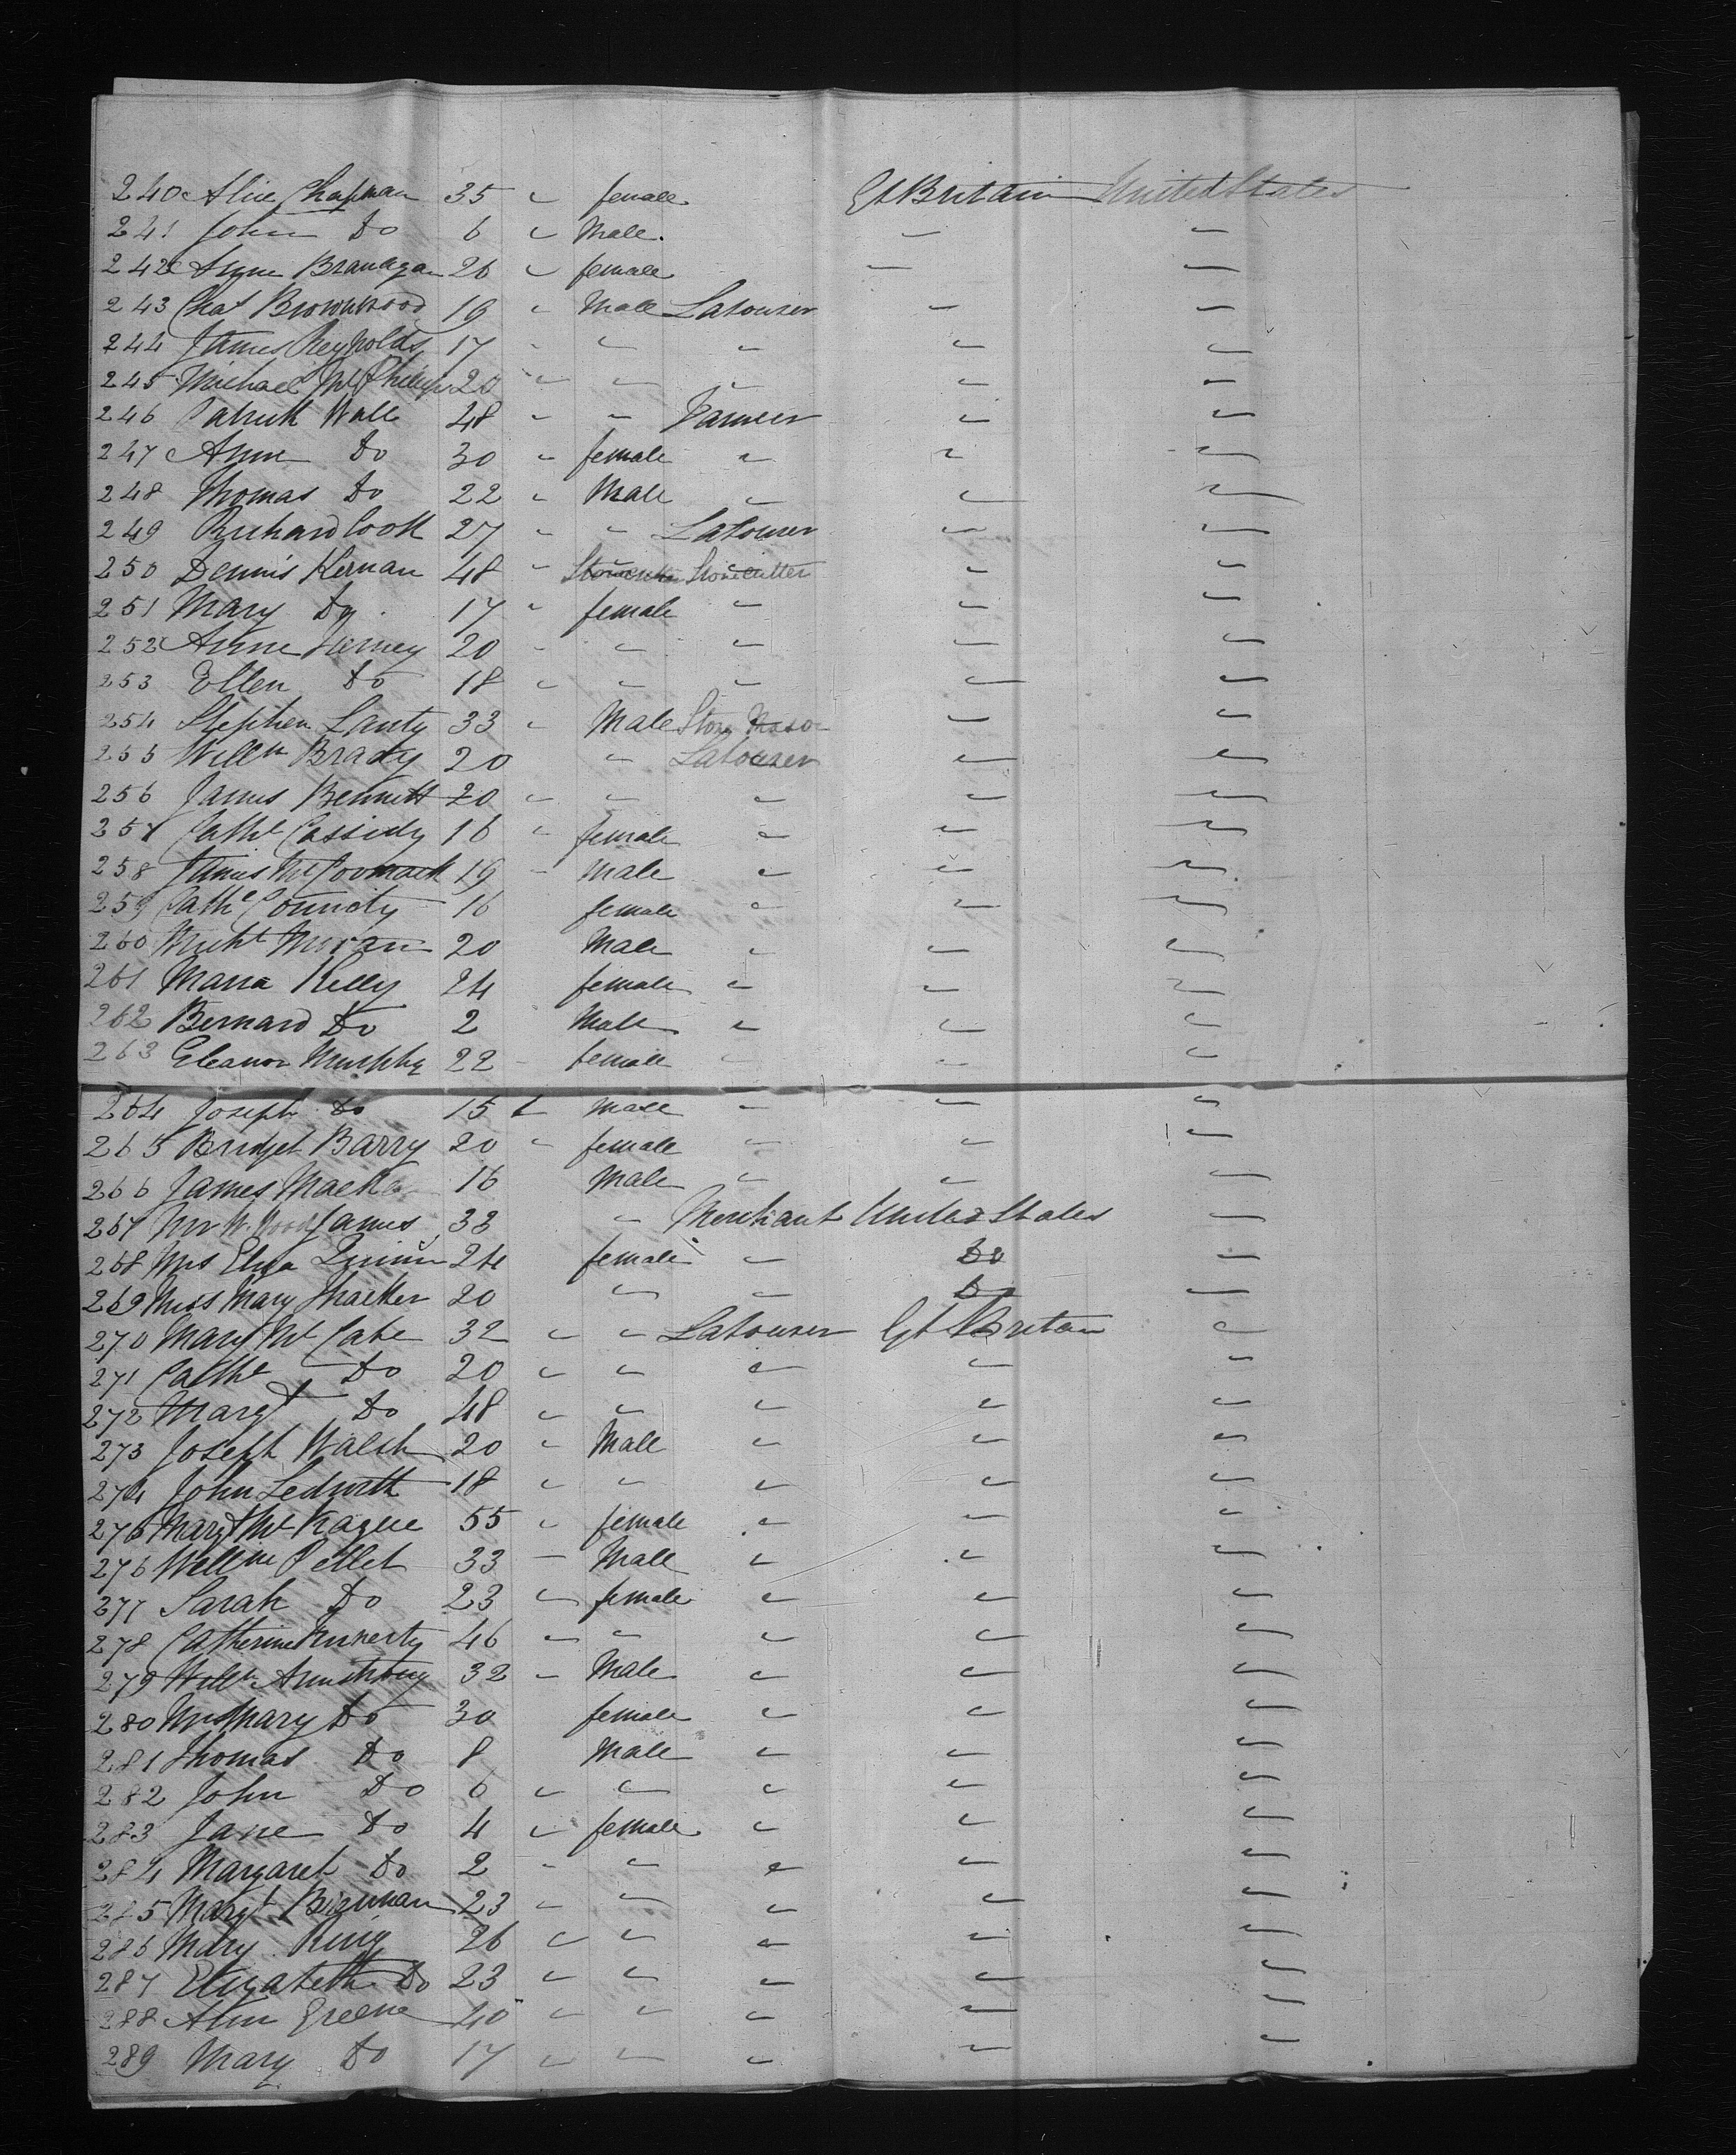 240 Alice Chapman 35 " female Gt Britain United States
241 John Do 6 " Male. " "
242 Anne Branagan 26 " female " "
243 Chas Brownwood 19 " Male Labourer " "
244 James Reynolds 17 " " " " "
245 Michael McPhilips 20 " " " " "
246 Patrick Wall 48 " " Farmer " "
247 Ann Do 30 " female " " "
248 Thomas Do 22 " Male " " "
249 Richard Cook 27 " " Labourer " "
250 Dennis Kernan 48 " Stonecutter Stonecutter " "
251 Mary Do 17 " female " " "
252 Anne 20 " " " " "
253 Ellen Do 18 " " " " "
254 Stephen Lanty 33 " Male Stone Mason " "
255 Willm Brady 20 " Labourer " "
256 James Bennett 20 " " " " "
257 Cathe Cassidy 16 " female " " "
258 James McCormack 19 " Male " " "
259 Cathe 16 female " " "
260 Michl Moran 20 Male " " "
261 Maria Kelly 24 female " " "
262 Bernard Do 2 Male " " "
263 Eleanor Murphy 22 " female " " "
264 Joseph Do 15 " Male " " "
265 Bridget Barry 20 " female " " "
266 James 16 Male " " "
267 Mr W. Wood James 33 " Merchant United States "
268 Mrs Eliza Quinn 24 female " Do "
269 Miss Mary Thacker 20 " " Do "
270 Mary McCabe 32 " " Labourer Gt Britain "
271 Cathe Do 20 " " " " "
272 Margt Do 48 " " " " "
273 Joseph Walsh 20 " Male " " "
274 John Ledwith 18 " " " " "
275 Margt McKague 55 " female " " "
276 Willm Pellet 33 " Male " " "
277 Sarah Do 23 " female " " "
278 Catherine 46 " " " " "
279 Willm Armstrong 32 " Male " " "
280 Mrs Mary Do 30 female " " "
281 Thomas Do 8 Male " " "
282 John Do 6 " " " " "
283 Jane Do 4 " female " " "
284 Margaret Do 2 " " " " "
285 Margt Brennan 23 " " " " "
286 Mary King 26 " " " " "
287 Elizabeth Do 23 " " " " "
288 Ann Greene 40 " " " " "
289 Mary Do 17 " " " " "